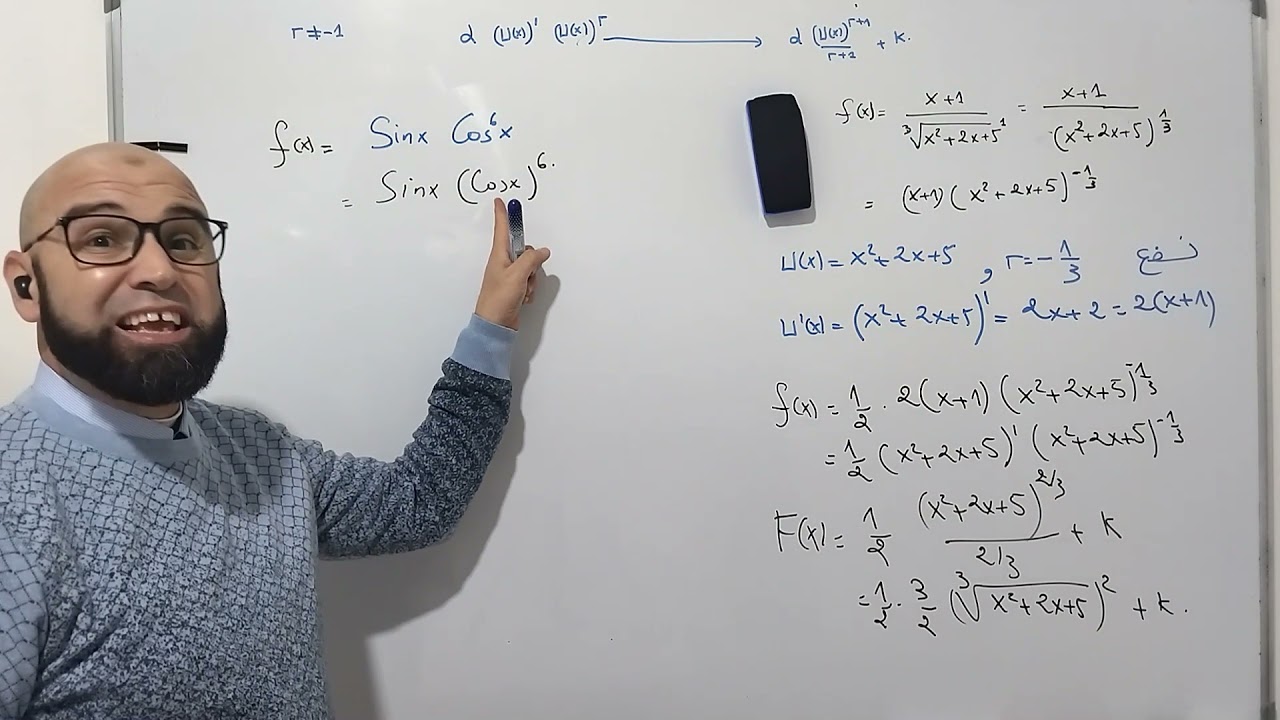 r≠-1 α (U(x))' (U(x))^r ⟶ α (U(x))^{r+1}/(r+1) + k.
f(x) = Sinx Cos⁶x
= Sinx (Cosx)^6.
f(x) = (x+1)/∛(x²+2x+5)¹ = (x+1)/(x²+2x+5)^{1/3}
= (x+1)(x²+2x+5)^{-1/3}
U(x) = x²+2x+5 , r = -1/3 نضع
U'(x) = (x²+2x+5)' = 2x+2 = 2(x+1)
f(x) = 1/2 . 2(x+1)(x²+2x+5)^{-1/3}
= 1/2 (x²+2x+5)' (x²+2x+5)^{-1/3}
F(x) = 1/2 (x²+2x+5)^{2/3}/(2/3) + k
= 1/2 . 3/2 (∛(x²+2x+5))² + k.